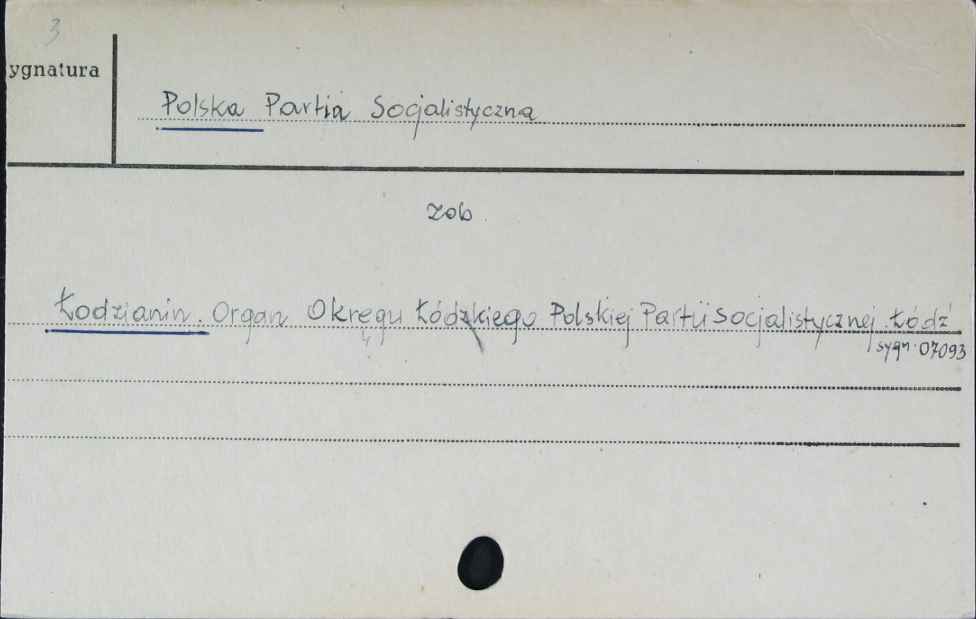 3
ygnatura
Polska Partia Socjalistyczna
zob.
Łodzianin. Organ Okręgu Łódzkiego Polskiej Partii Socjalistycznej. Łódź
sygn. 07093